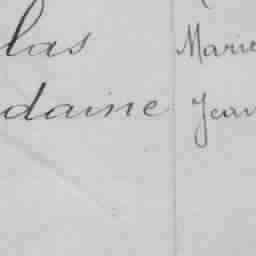 las Marie
daine Jean